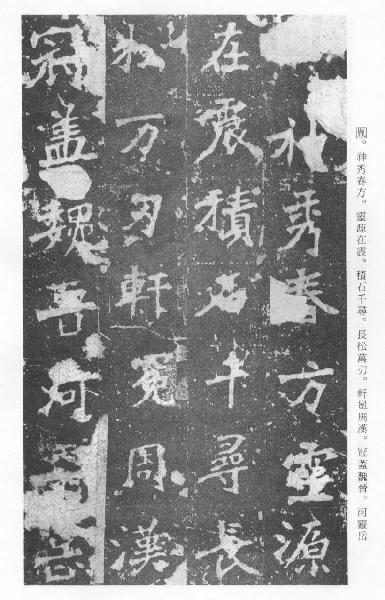 。神秀春方。靈源在震。積石千尋。長松萬刃。軒冕周漢。冠蓋魏晉。河靈岳
神秀春方靈源
在震積石千尋長
松万刃軒冕周漢
冠盖魏晉河靈岳